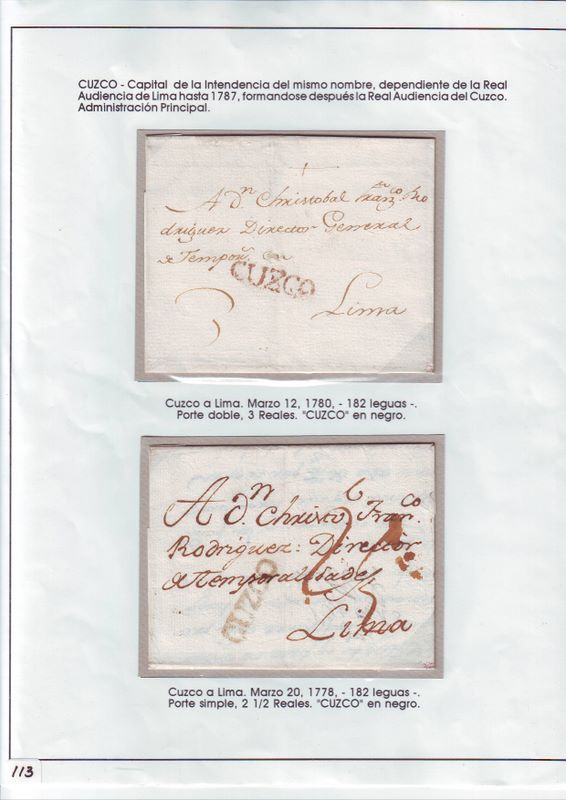 CUZCO - Capital de la Intendencia del mismo nombre, dependiente de la Real
Audiencia de Lima hasta 1787, formandose después la Real Audiencia del Cuzco.
Administración Principal.
A Dn Christobal Franco Ro
driguez Director General
de Tempors en
CUZCO
Lima
3
Cuzco a Lima. Marzo 12, 1780, - 182 leguas -.
Porte doble, 3 Reales. "CUZCO" en negro.
A Dn Christol Franco
Rodriguez: Director
de Temporalidades
CUZCO
Lima
Cuzco a Lima. Marzo 20, 1778, - 182 leguas -.
Porte simple, 2 1/2 Reales. "CUZCO" en negro.
113